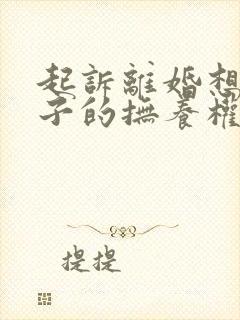 起訴離婚想
子的撫養權
提提